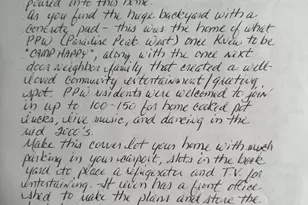 poured into this home.
As you find the huge backyard with a
concrete pad - this was the home of what
PPW (Paradise Peak West) once knew to be
"CAMP HAPPY", along with the once next
door neighbor family that created a well-
loved Community entertainment/greeting
spot. PPW residents were welcomed to join
in up to 100-150 for home cooked pot
lucks, live music, and dancing in the
mid 2000's.
Make this corner lot your home with much
parking in your carport, slots in the back
yard to place a refrigerator and T.V for
entertaining. It even has a front office
shed to make the plans and store the